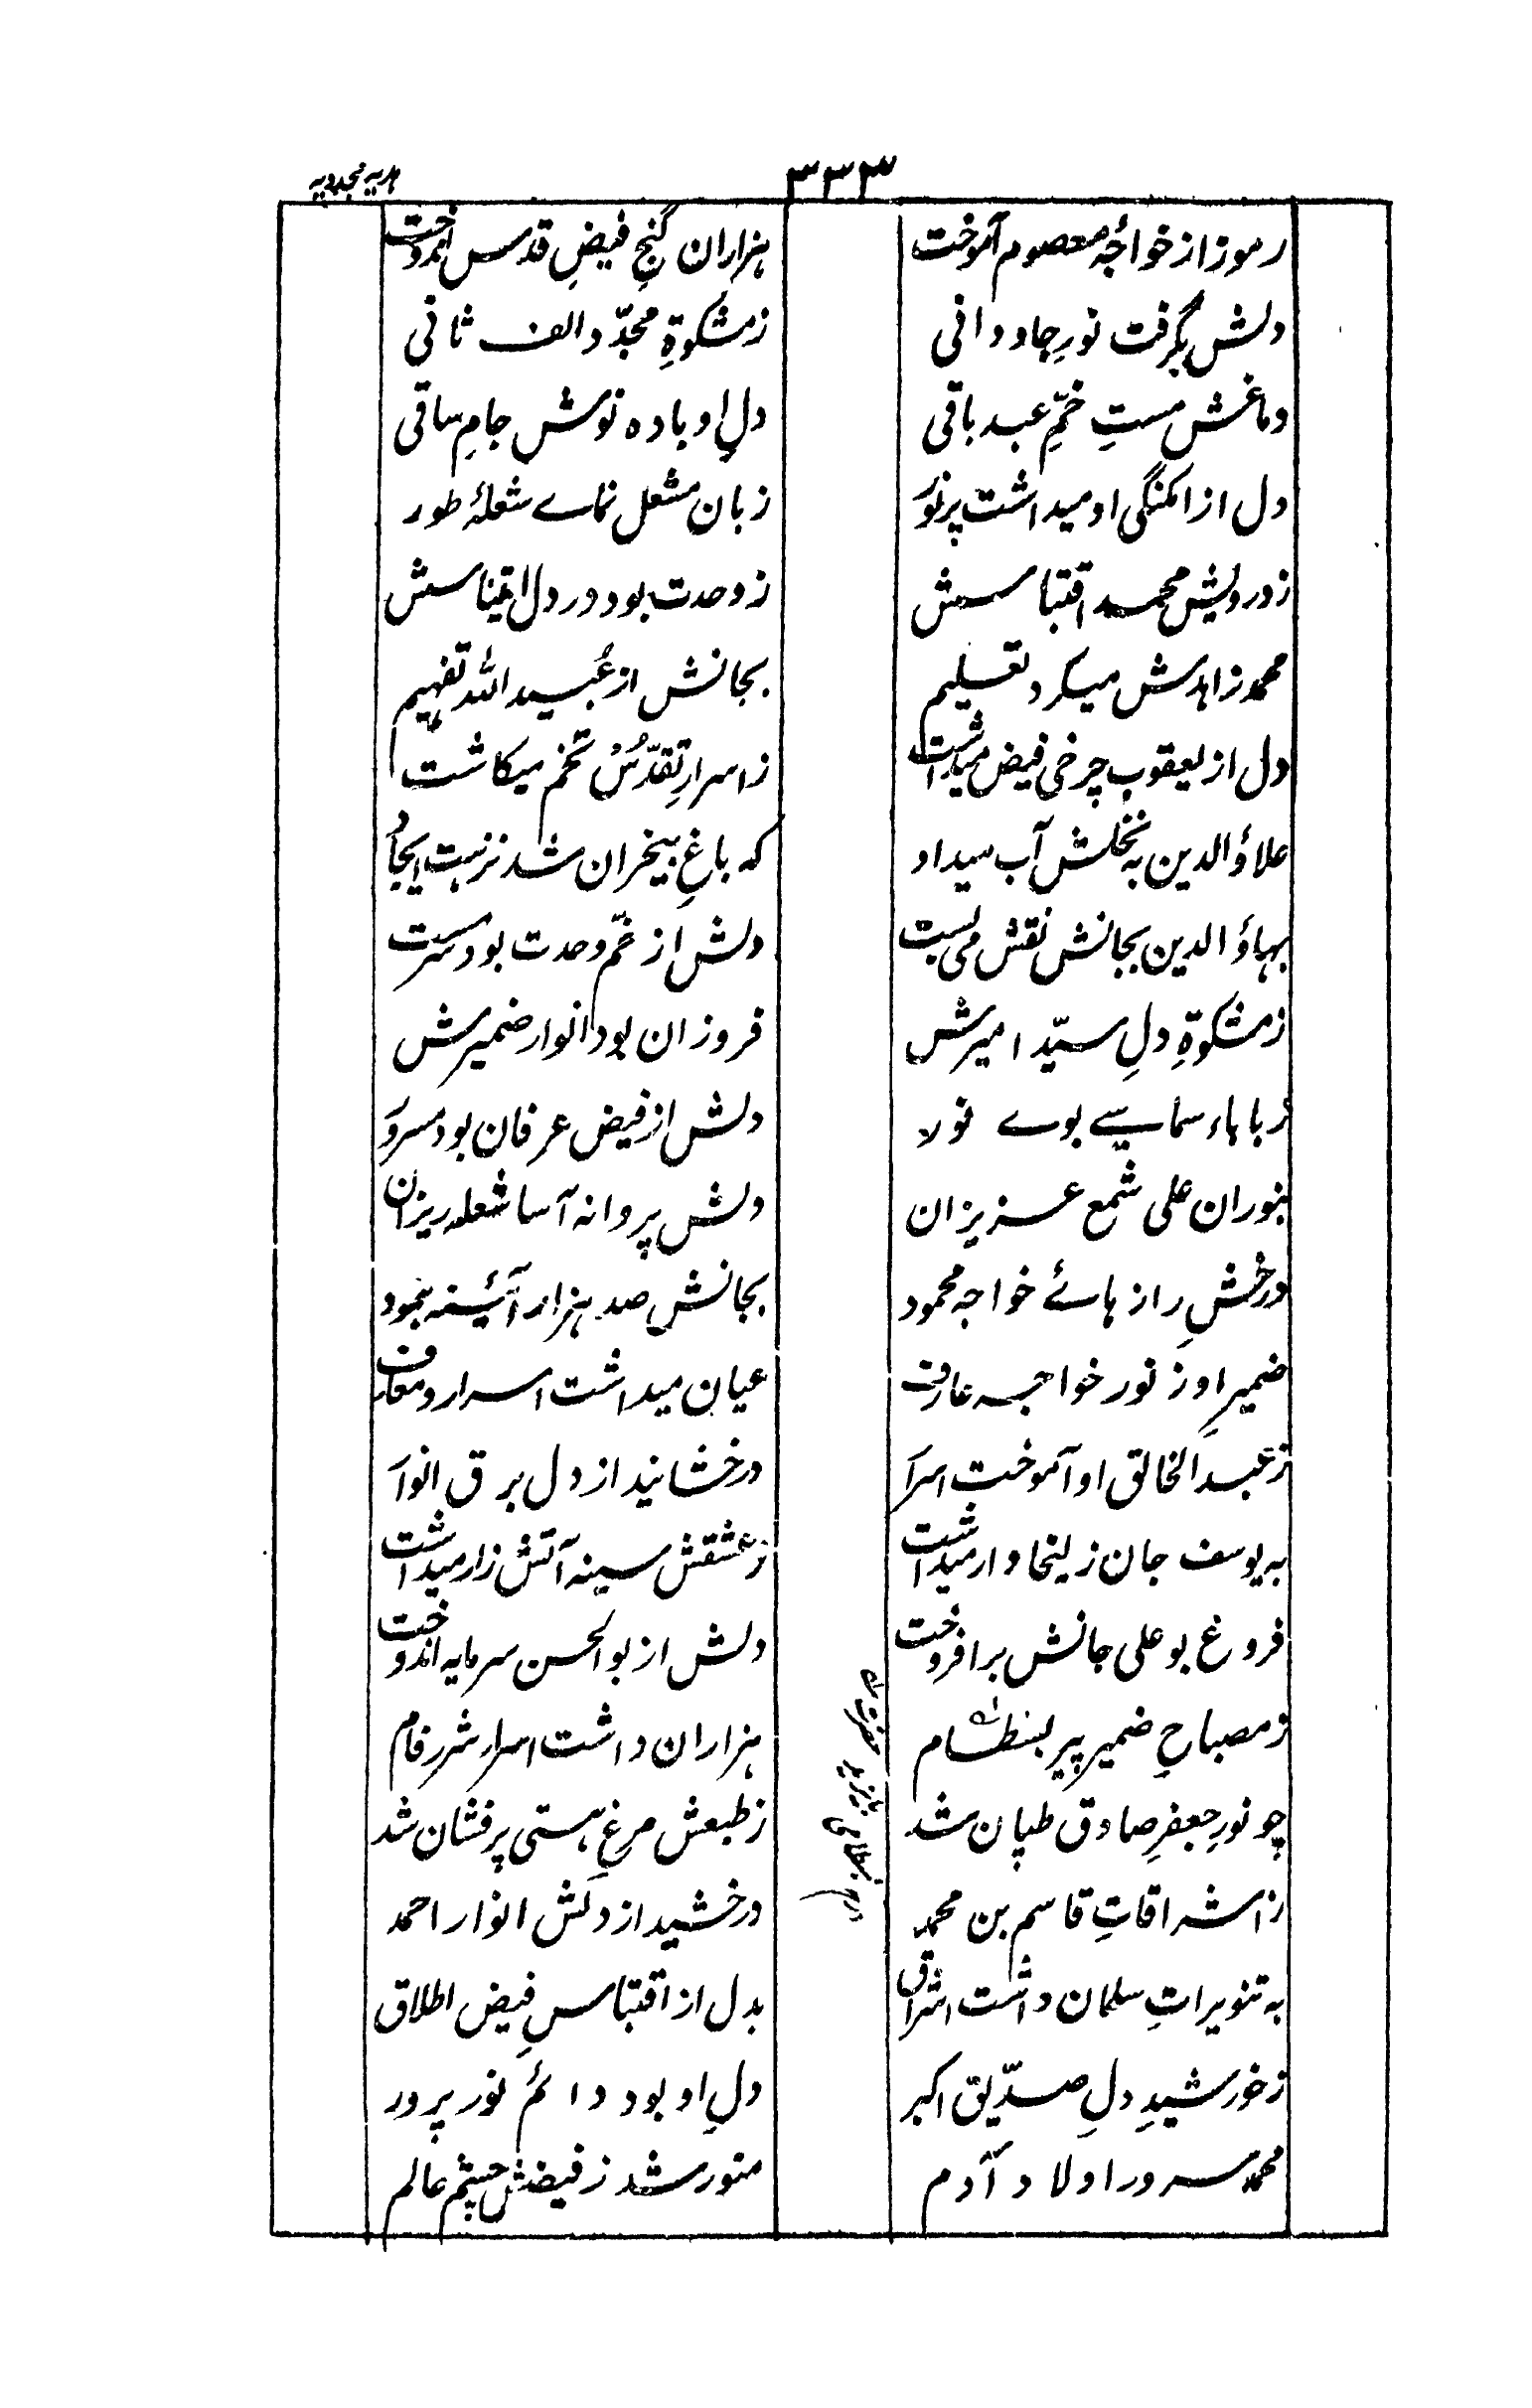 ۳۳۳
ہدیہ مجددیہ
رموز از خواجۂ معصوم آموخت	ہزاران گنجِ فیضِ قدس اندوخت
دلش بگرفت نورِ جاودانی	ز مشکوٰةِ مجدّد الف ثانی
دماغش مستِ خمِّ عبد باقی	دلِ او بادہ نوش جامِ ساقی
دل از امکنگی او میداشت پرنور	زبان مشعل نماے شعلۂ طور
ز درویش محمد اقتباسش	ز وحدت بود در دل اقتناسش
محمد زاہدش میکرد تعلیم	بجانش از عُبید اللہ تفہیم
دل از یعقوب چرخی فیض میداشت	ز اسرارِ تقدّسُ تخم میکاشت
علاؤالدین بہ نخلش آب میداد	کہ باغِ بیخزان شد نزہت ایجاد
بہاؤالدین بجانش نقش می بست	دلش از خمِّ وحدت بود سرمست
ز مشکوٰةِ دلِ سیّد امیرش	فروزان بود انوار ضمیرش
ز باباء سماسے بوے نور	دلش از فیض عرفان بود مسرور
بنوران علی شمع عزیزان	دلش پروانہ آسا شعلہ ریزان
درخشِ رازہائے خواجہ محمود	بجانش صد ہزار آئینہ بنمود
ضمیرِ او ز نور خواجہ عارف	عیان میداشت اسرار و معارف
ز عبد الخالق او آموخت اسرار	درخشانید از دل برق انوار
بہ یوسف جان زلیخا وار میداشت	ز عشقش سینہ آتش زار میداشت
فروغ بوعلی جانش برافروخت	دلش از بوالحسن سرمایہ اندوخت
ز مصباحِ ضمیر پیر بسطام	ہزاران داشت اسرار شررفام
چو نورِ جعفرِ صادق طپان شد	ز طبعش مرغِ ہستی پرفشان شد
ز اشراقاتِ قاسم بن محمد	درخشید از دلش انوار احمد
بہ تنویراتِ سلمان داشت اشراق	بدل از اقتباسِ فیض اطلاق
ز خورشیدِ دلِ صدّیق اکبر	دلِ او بود دائم نور پرور
محمدؐ سرور اولاد آدم	منور شد ز فیضش چشم عالم
حضرت بایزید بسطامی